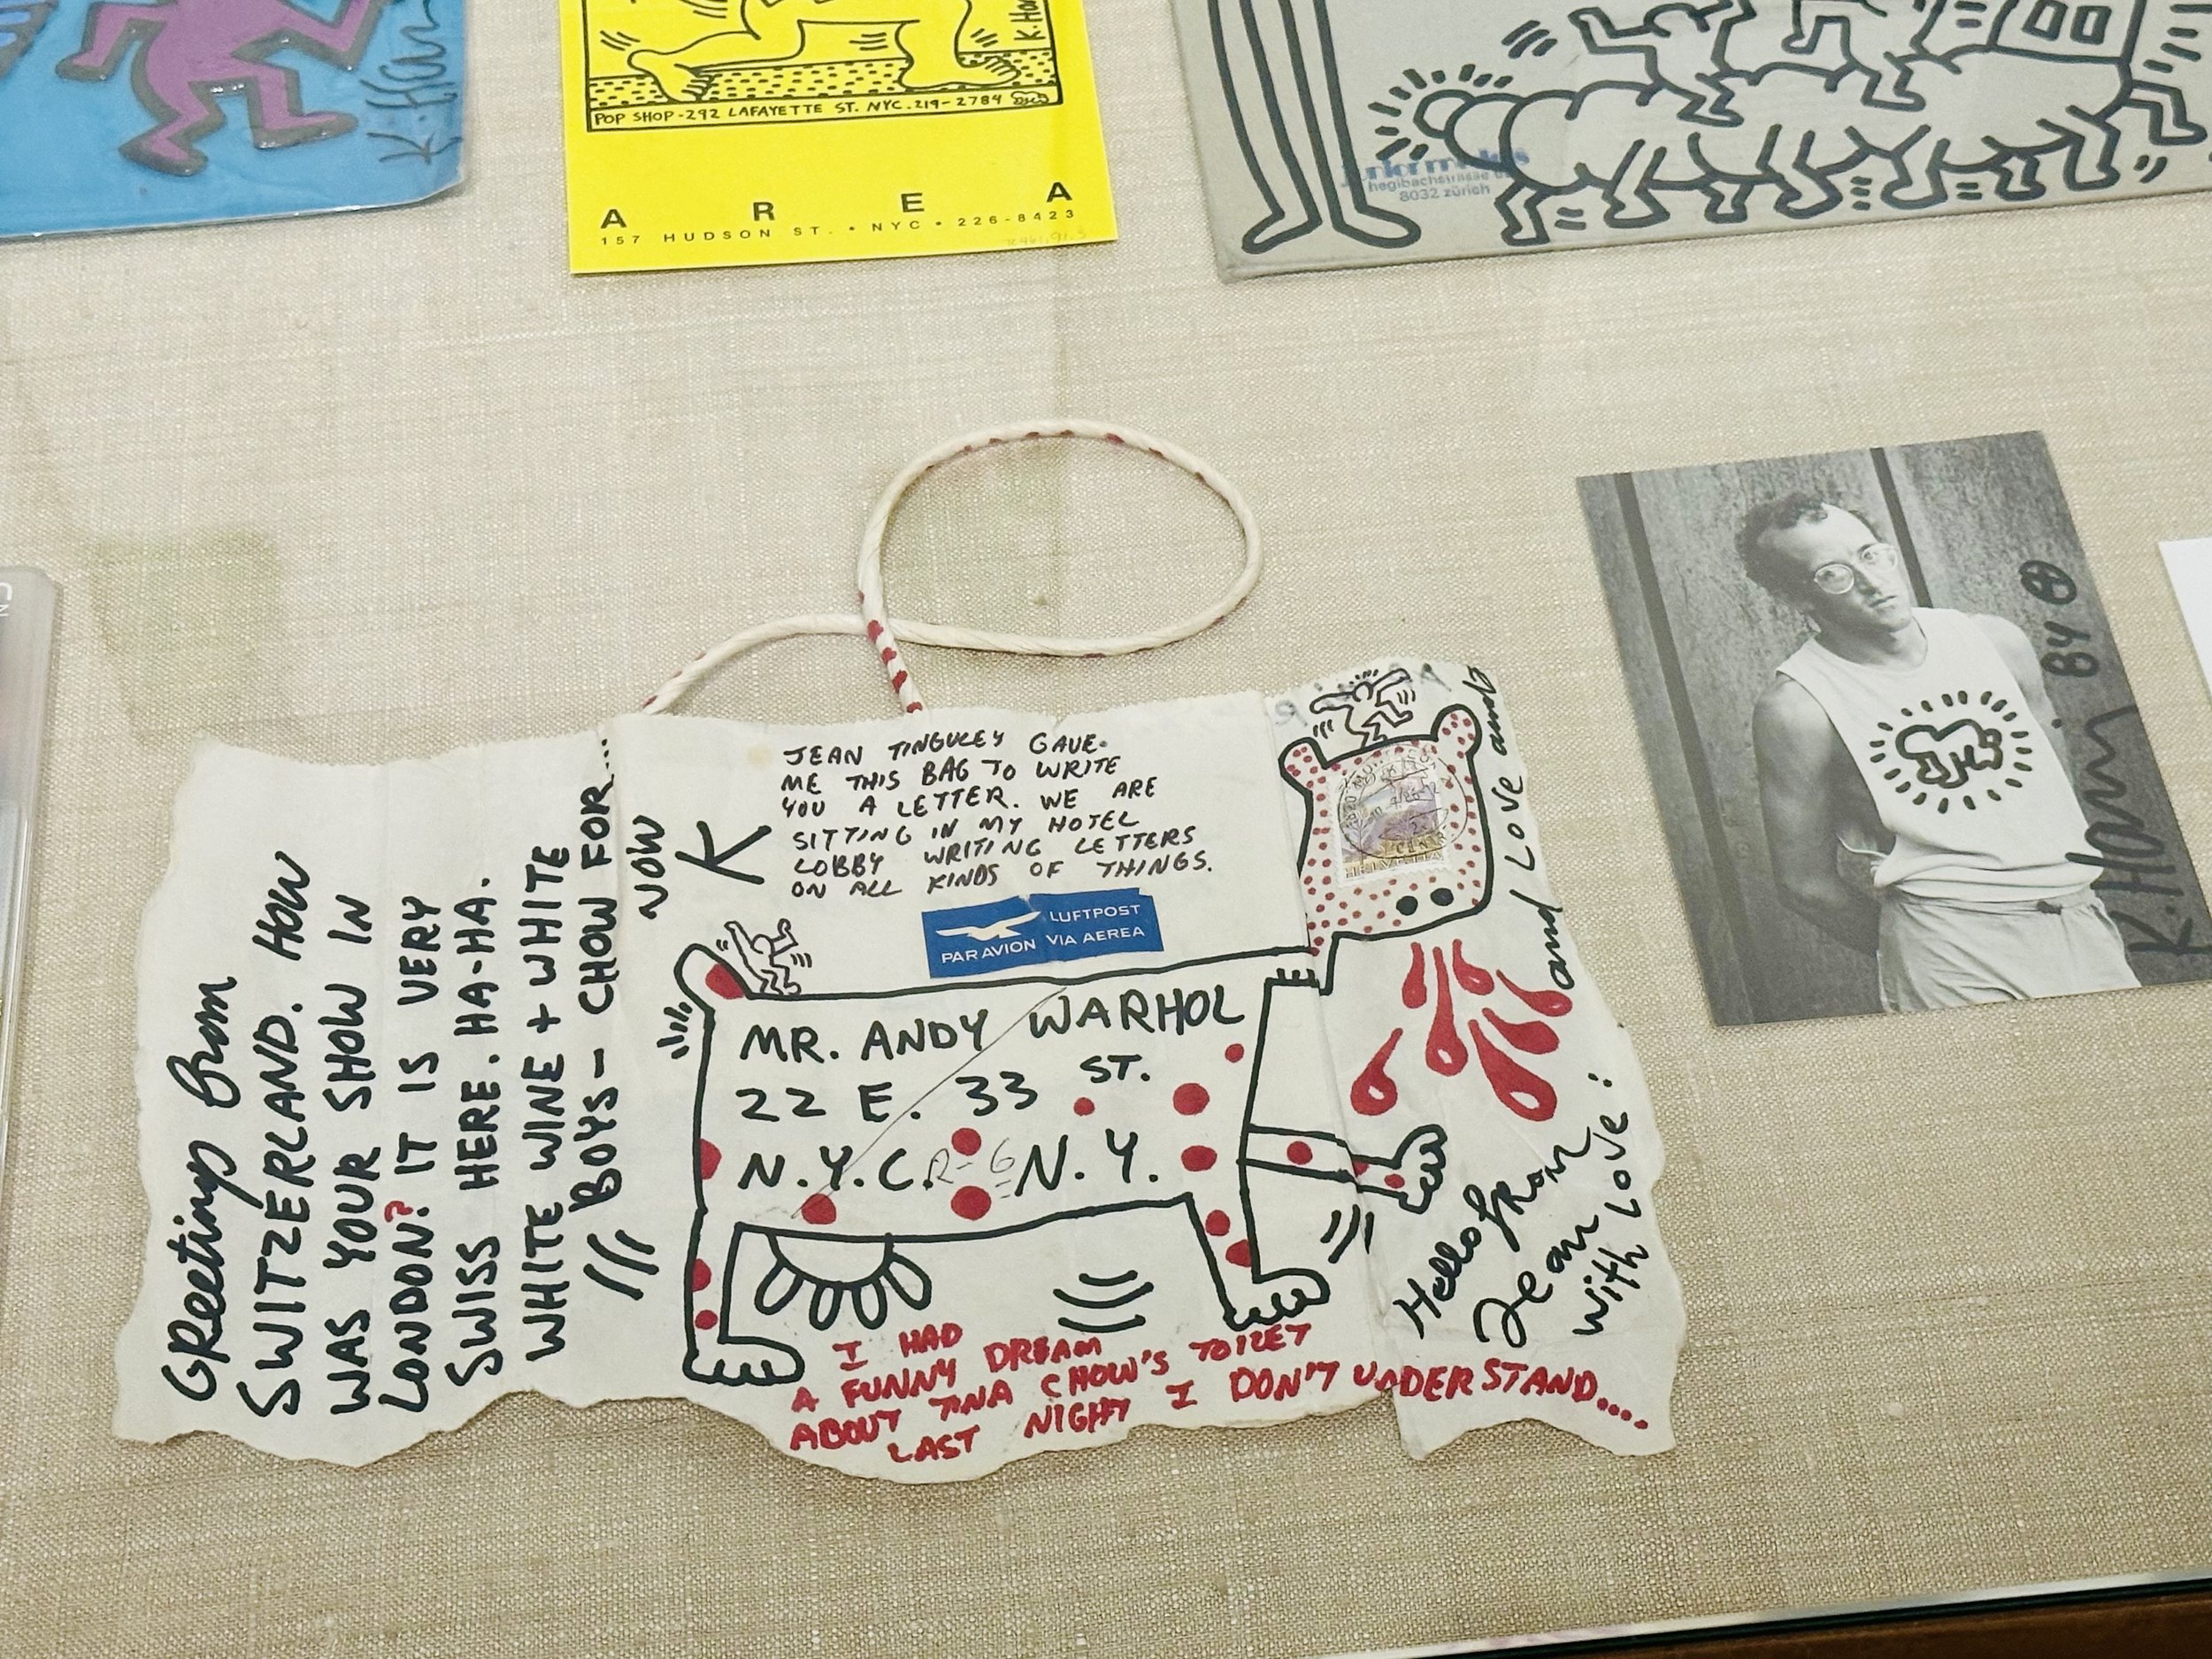 K. Haring
K. Har
POP SHOP-292 LAFAYETTE ST. NYC. 219-2784
A R E A
157 HUDSON ST. • NYC • 226-8423
junior
hegibachstrasse
8032 zürich
GReetings from
SWITZERLAND. HOW
WAS YOUR SHOW IN
LONDON? IT IS VERY
SWISS HERE. HA-HA.
WHITE WINE + WHITE
BOYS - CHOW FOR...
NOW
K
JEAN TINGULEY GAVE
ME THIS BAG TO WRITE
YOU A LETTER. WE ARE
SITTING IN MY HOTEL
LOBBY WRITING LETTERS
ON ALL KINDS OF THINGS.
LUFTPOST
PAR AVION VIA AEREA
HELVETIA
MR. ANDY WARHOL
22 E. 33 ST.
N.Y.C. R-6 N.Y.
I HAD
A FUNNY DREAM
ABOUT TINA CHOW'S TOILET
LAST NIGHT I DON'T UNDERSTAND....
Hello from
Jean
with Love:
and Love and
K. Haring 84